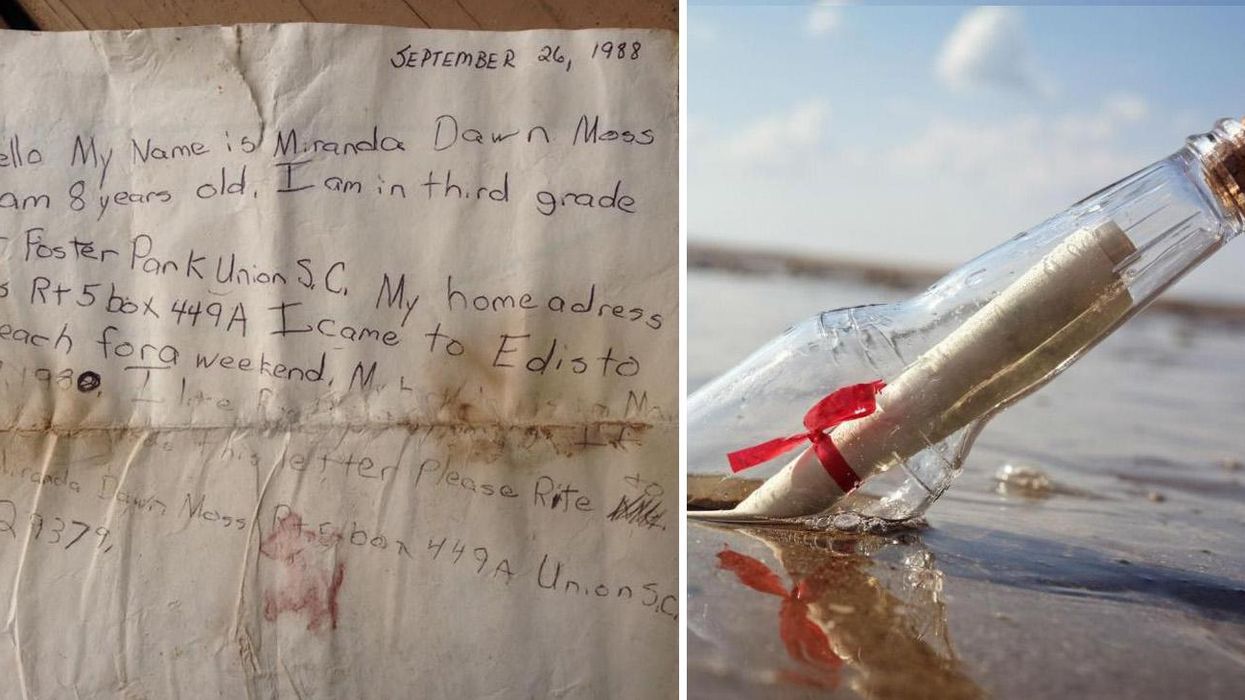 SEPTEMBER 26, 1988
ello My Name is Miranda Dawn Moss
am 8 years old. I am in third grade
Foster Park Union S.C. My home adress
s Rt 5 box 449A I came to Edisto
each for a weekend.
I like
this letter Please Rite to
iranda Dawn Moss Rt 5 box 449A Union S.C.
29379,